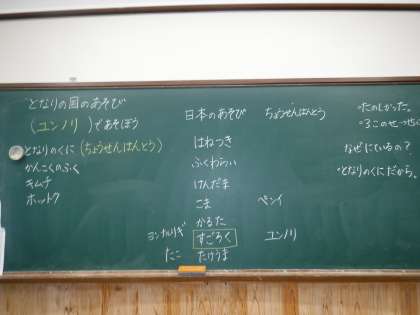 となりの国のあそび
(ユンノリ)であそぼう
となりのくに(ちょうせんはんとう)
かんこくのふく
キムチ
ホットク
日本のあそび
はねつき
ふくわらい
けんだま
こま
かるた
すごろく
たけうま
ヨンナルリギ
たこ
ちょうせんはんとう
ペンイ
ユンノリ
○たのしかった。
○3このせっせん
なぜにているの?
○となりのくにだから。